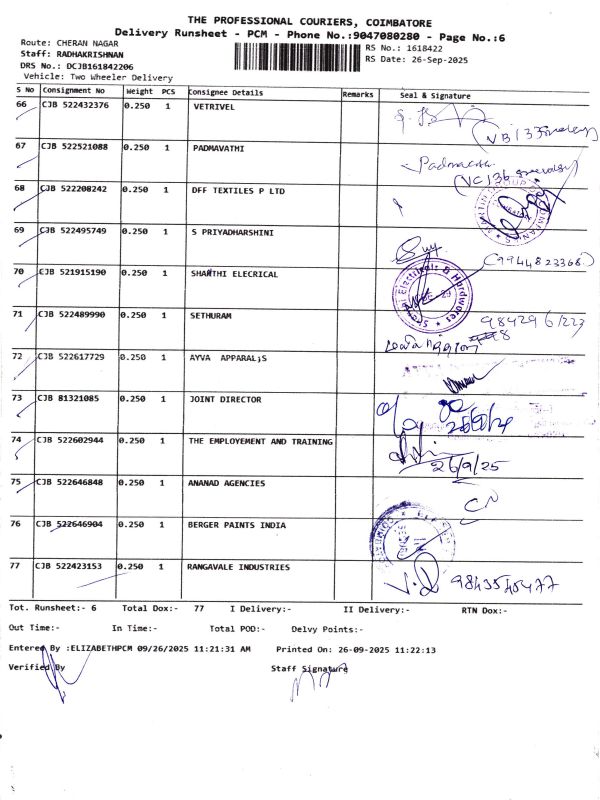 THE PROFESSIONAL COURIERS, COIMBATORE
Delivery Runsheet - PCM - Phone No.:9047080280 - Page No.:6
Route: CHERAN NAGAR
Staff: RADHAKRISHNAN
DRS No.: DCJB161842206
Vehicle: Two Wheeler Delivery
RS No.: 1618422
RS Date: 26-Sep-2025
S No Consignment No Weight PCS Consignee Details Remarks Seal & Signature
66 CJB 522432376 0.250 1 VETRIVEL
67 CJB 522521088 0.250 1 PADMAVATHI
Padmavathi
68 CJB 522208242 0.250 1 DFF TEXTILES P LTD
69 CJB 522495749 0.250 1 S PRIYADHARSHINI
(9944823368)
70 CJB 521915190 0.250 1 SHAKTHI ELECRICAL
71 CJB 522489990 0.250 1 SETHURAM
72 CJB 522617729 0.250 1 AYVA APPARAL;S
73 CJB 81321085 0.250 1 JOINT DIRECTOR
74 CJB 522602944 0.250 1 THE EMPLOYEMENT AND TRAINING
26/9/25
75 CJB 522646848 0.250 1 ANANAD AGENCIES
76 CJB 522646904 0.250 1 BERGER PAINTS INDIA
77 CJB 522423153 0.250 1 RANGAVALE INDUSTRIES
9843545477
Tot. Runsheet:- 6 Total Dox:- 77 I Delivery:- II Delivery:- RTN Dox:-
Out Time:- In Time:- Total POD:- Delvy Points:-
Entered By :ELIZABETHPCM 09/26/2025 11:21:31 AM Printed On: 26-09-2025 11:22:13
Verified By Staff Signature